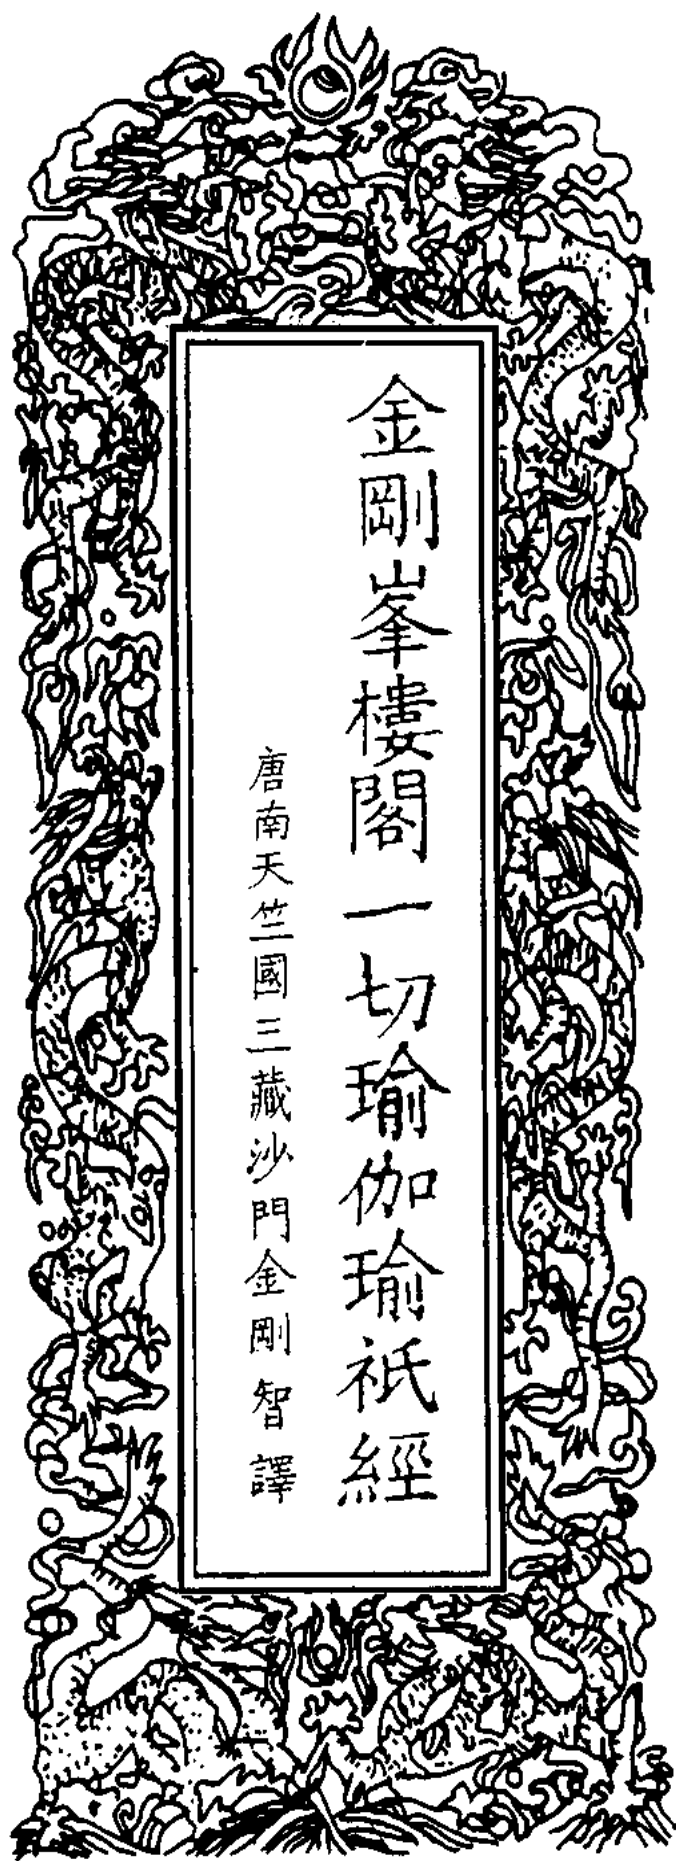 金剛峯樓閣一切瑜伽瑜祇經
唐南天竺國三藏沙門金剛智譯